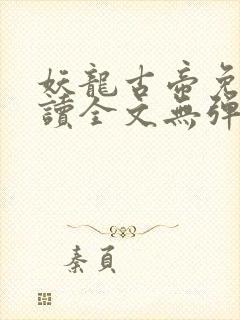 妖龍古帝免
讀全文無彈
秦頁